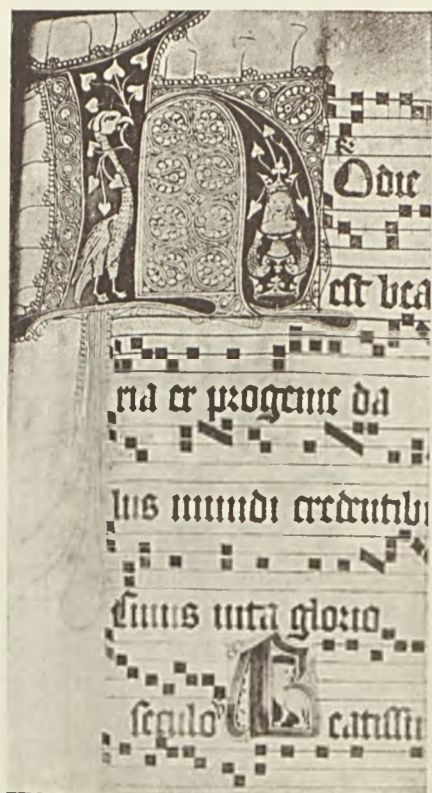 Hodie
est bea
ria ex progenie da
lus mundi credentibu
cuius uita glorio
seculo Beatissi